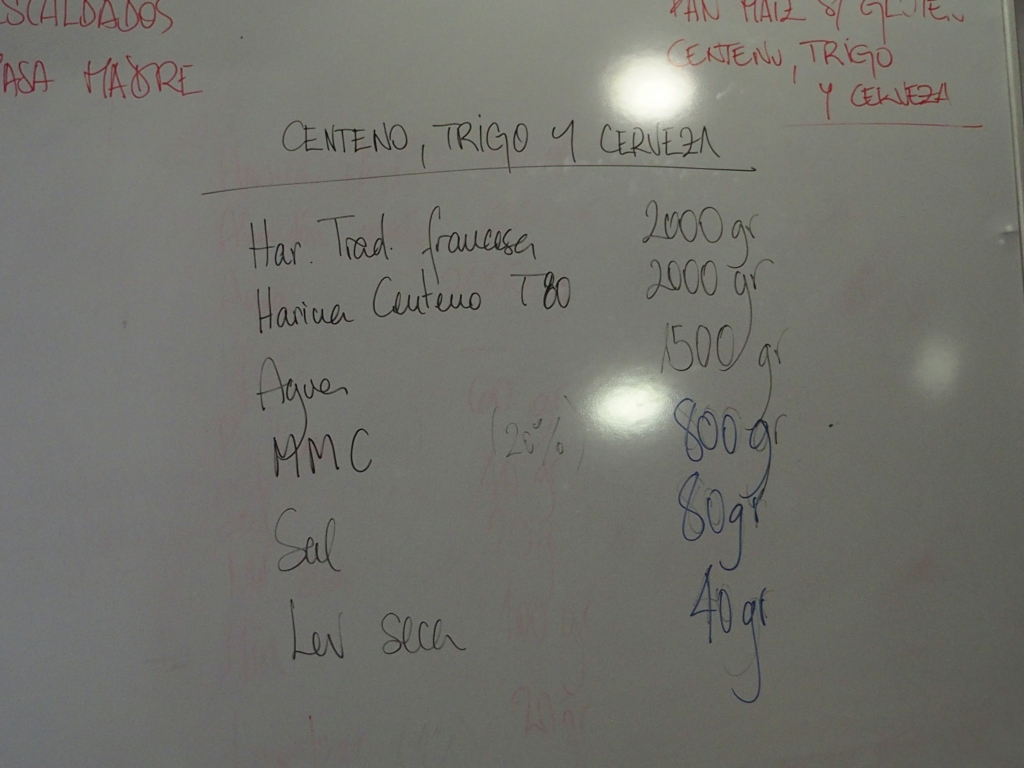 MADRE
PAN MAIZ S/ GLUTEN
CENTENO, TRIGO
Y CERVEZA
CENTENO, TRIGO Y CERVEZA
Har. Trad. francesa 2000 gr
Harina Centeno T80 2000 gr
Agua 1500 gr
MMC (20%) 800 gr
Sal 80 gr
Lev seca 40 gr